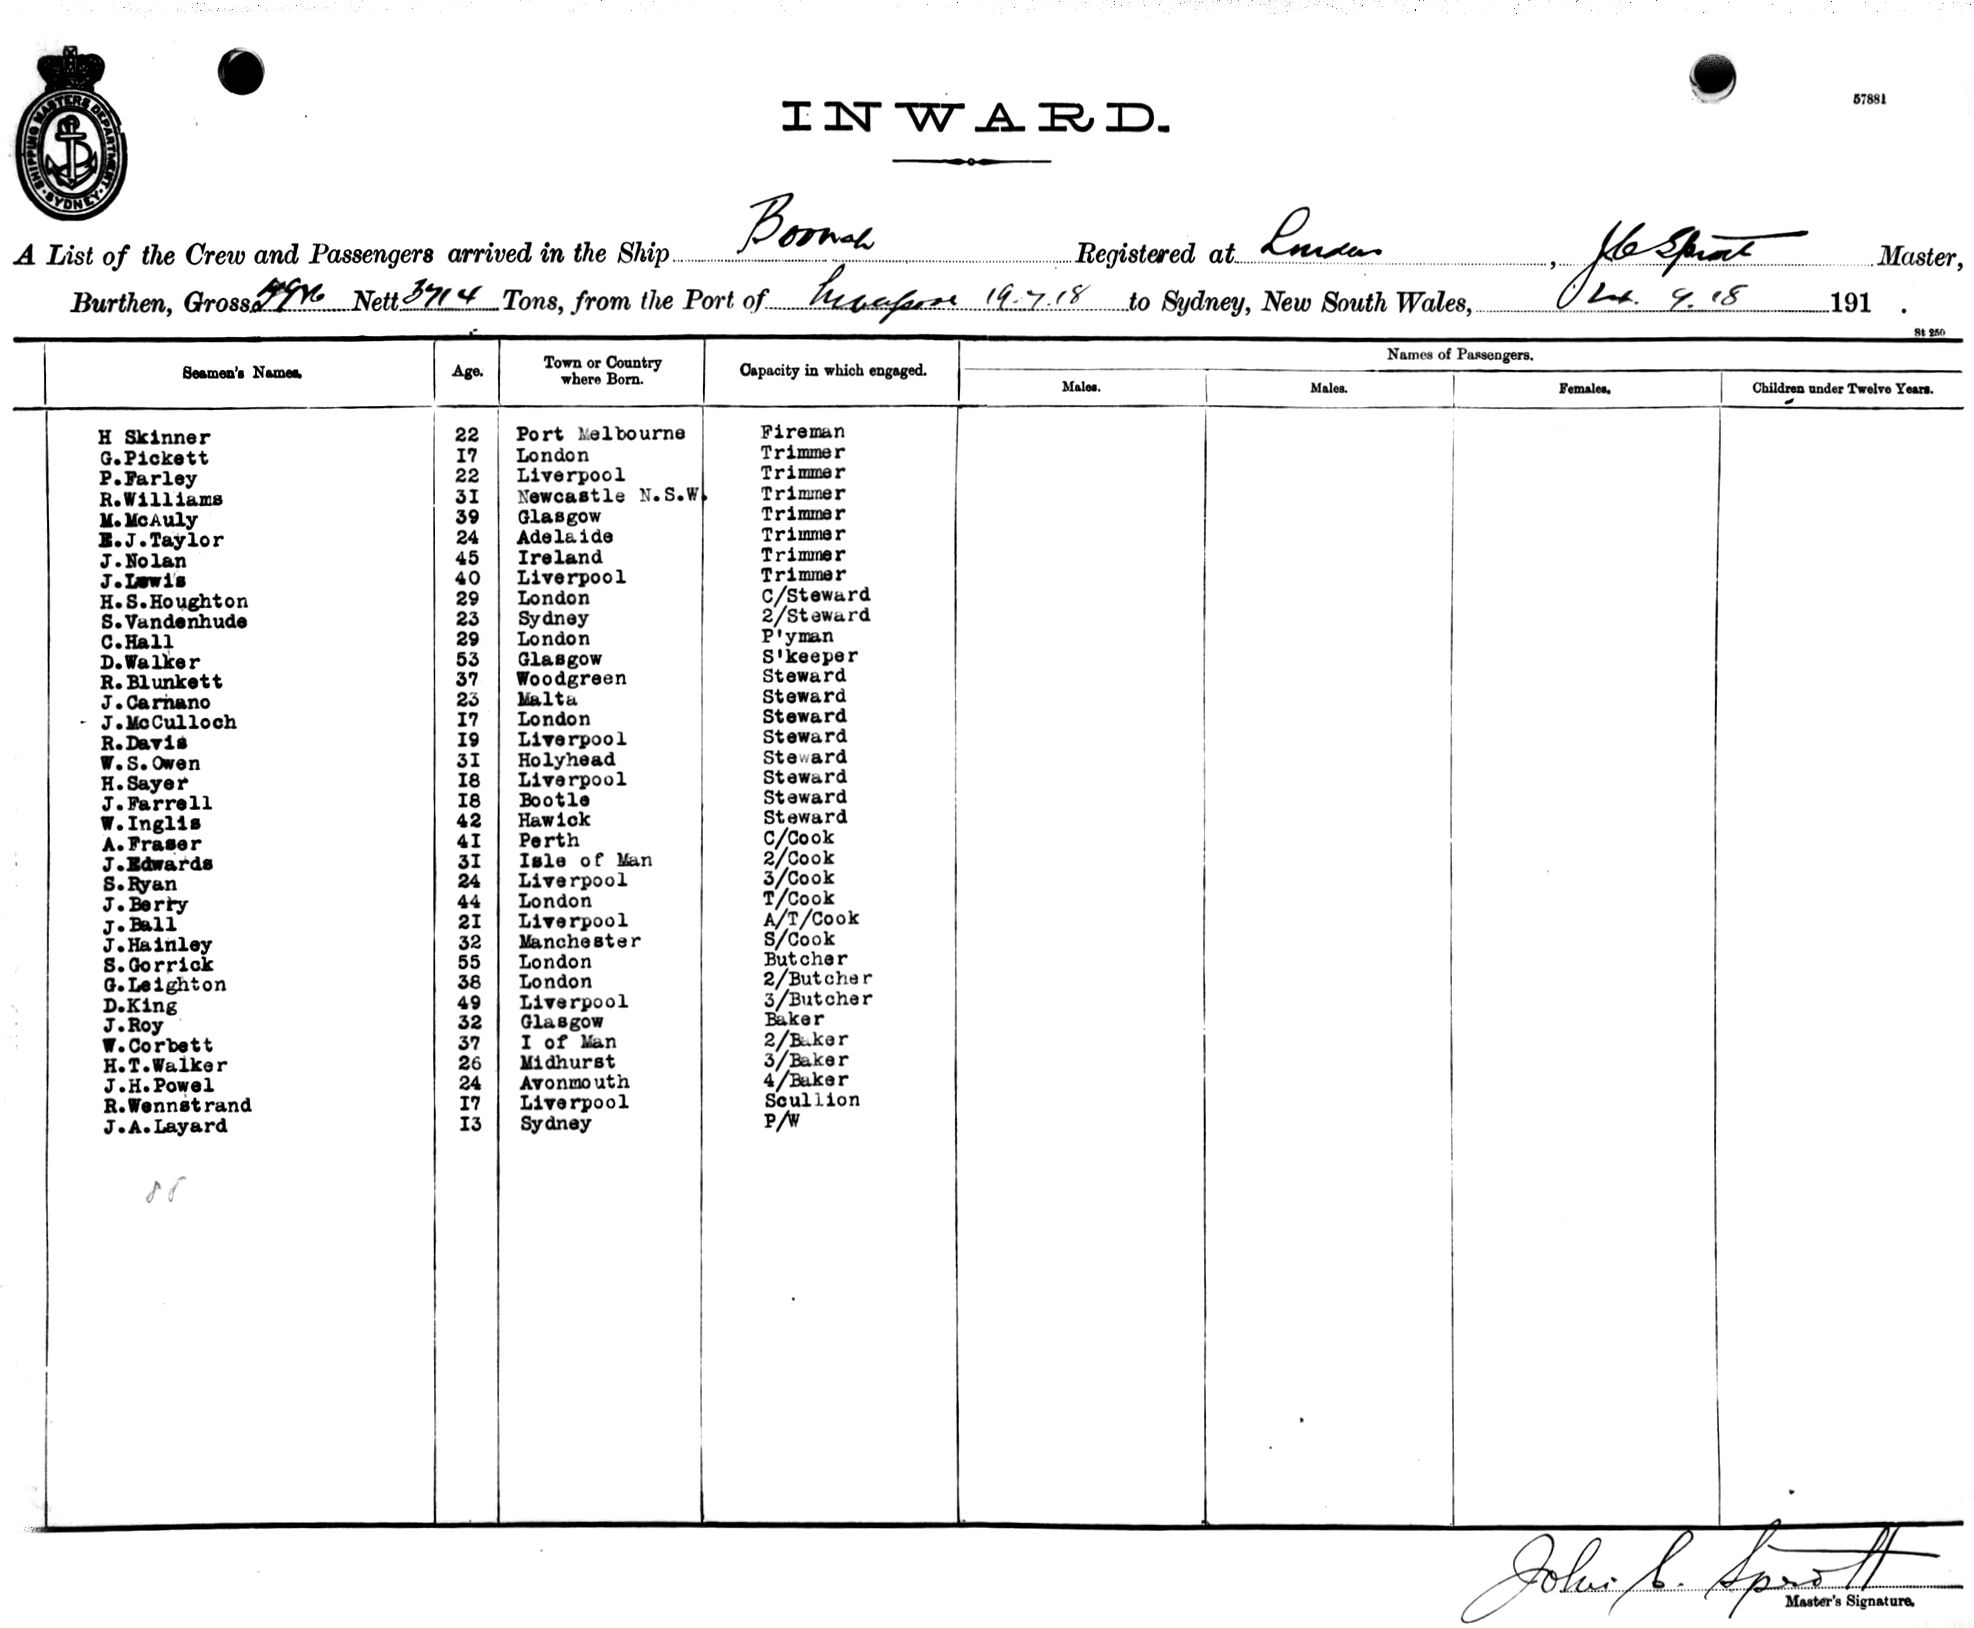 SHIPPING MASTERS DEPARTMENT. SYDNEY
57881
INWARD.
A List of the Crew and Passengers arrived in the Ship Boonah Registered at London, J C Sprott Master,
Burthen, Gross Nett 3714 Tons, from the Port of Liverpool 19.7.18 to Sydney, New South Wales, 9.18 191 .
St 250
Seamen's Names. Age. Town or Country where Born. Capacity in which engaged. Names of Passengers.
Males. Males. Females. Children under Twelve Years.
H Skinner 22 Port Melbourne Fireman
G.Pickett I7 London Trimmer
P.Farley 22 Liverpool Trimmer
R.Williams 3I Newcastle N.S.W. Trimmer
M.McAuly 39 Glasgow Trimmer
E.J.Taylor 24 Adelaide Trimmer
J.Nolan 45 Ireland Trimmer
J.Lewis 40 Liverpool Trimmer
H.S.Houghton 29 London C/Steward
S.Vandenhude 23 Sydney 2/Steward
C.Hall 29 London P'yman
D.Walker 53 Glasgow S'keeper
R.Blunkett 37 Woodgreen Steward
J.Carnano 23 Malta Steward
J.McCulloch I7 London Steward
R.Davis I9 Liverpool Steward
W.S.Owen 3I Holyhead Steward
H.Sayer I8 Liverpool Steward
J.Farrell I8 Bootle Steward
W.Inglis 42 Hawick Steward
A.Fraser 4I Perth C/Cook
J.Edwards 3I Isle of Man 2/Cook
S.Ryan 24 Liverpool 3/Cook
J.Berry 44 London T/Cook
J.Ball 2I Liverpool A/T/Cook
J.Hainley 32 Manchester S/Cook
S.Gorrick 55 London Butcher
G.Leighton 38 London 2/Butcher
D.King 49 Liverpool 3/Butcher
J.Roy 32 Glasgow Baker
W.Corbett 37 I of Man 2/Baker
H.T.Walker 26 Midhurst 3/Baker
J.H.Powel 24 Avonmouth 4/Baker
R.Wennstrand I7 Liverpool Scullion
J.A.Layard I3 Sydney P/W
John C. Sprott
Master's Signature.